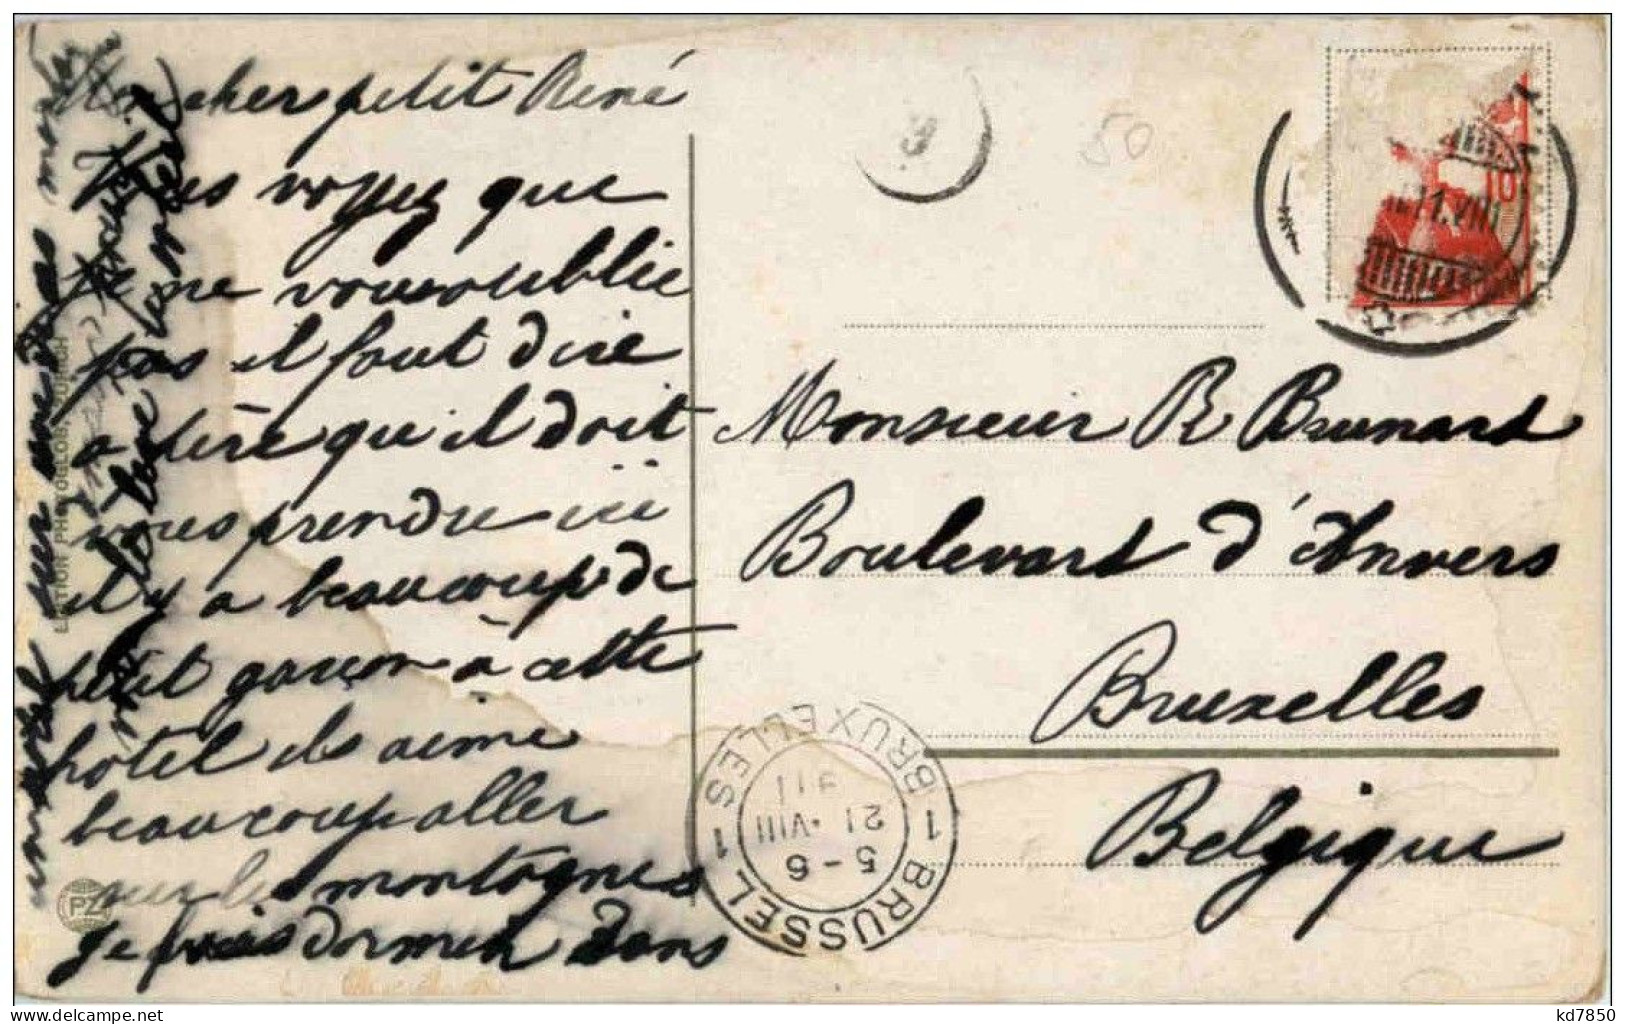 Mon cher petit René
Vous voyez que
je ne vous oublie
pas il faut dire
a père qu il doit
vous prendre ici
il y a beaucoup de
petit garçon à cette
hotel ils aime
beaucoup aller
sur les montagnes
je vais dormir dans
un hotel sur une
PHOTOGLOB, ZÜRICH
PZ
9
50
10
Monsieur R Brunard
Boulevard d'Anvers
Bruxelles
Belgique
1 BRUSSEL 1 BRUXELLES
5-6
21.VIII
911
kd7850